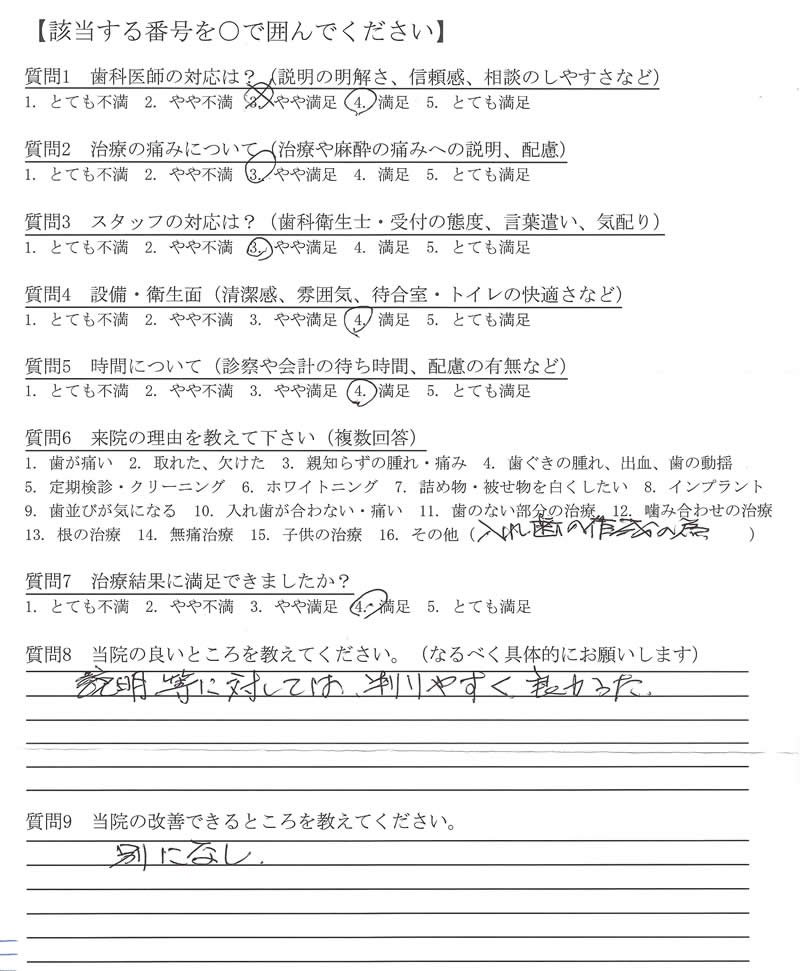 【該当する番号を○で囲んでください】
質問1 歯科医師の対応は?（説明の明解さ、信頼感、相談のしやすさなど）
1. とても不満 2. やや不満 3. やや満足 4. 満足 5. とても満足
質問2 治療の痛みについて（治療や麻酔の痛みへの説明、配慮）
1. とても不満 2. やや不満 3. やや満足 4. 満足 5. とても満足
質問3 スタッフの対応は?（歯科衛生士・受付の態度、言葉遣い、気配り）
1. とても不満 2. やや不満 3. やや満足 4. 満足 5. とても満足
質問4 設備・衛生面（清潔感、雰囲気、待合室・トイレの快適さなど）
1. とても不満 2. やや不満 3. やや満足 4. 満足 5. とても満足
質問5 時間について（診察や会計の待ち時間、配慮の有無など）
1. とても不満 2. やや不満 3. やや満足 4. 満足 5. とても満足
質問6 来院の理由を教えて下さい（複数回答）
1. 歯が痛い 2. 取れた、欠けた 3. 親知らずの腫れ・痛み 4. 歯ぐきの腫れ、出血、歯の動揺
5. 定期検診・クリーニング 6. ホワイトニング 7. 詰め物・被せ物を白くしたい 8. インプラント
9. 歯並びが気になる 10. 入れ歯が合わない・痛い 11. 歯のない部分の治療 12. 噛み合わせの治療
13. 根の治療 14. 無痛治療 15. 子供の治療 16. その他（入れ歯の の為）
質問7 治療結果に満足できましたか?
1. とても不満 2. やや不満 3. やや満足 4. 満足 5. とても満足
質問8 当院の良いところを教えてください。（なるべく具体的にお願いします）
説明等に対しては、判りやすく、
質問9 当院の改善できるところを教えてください。
別になし.